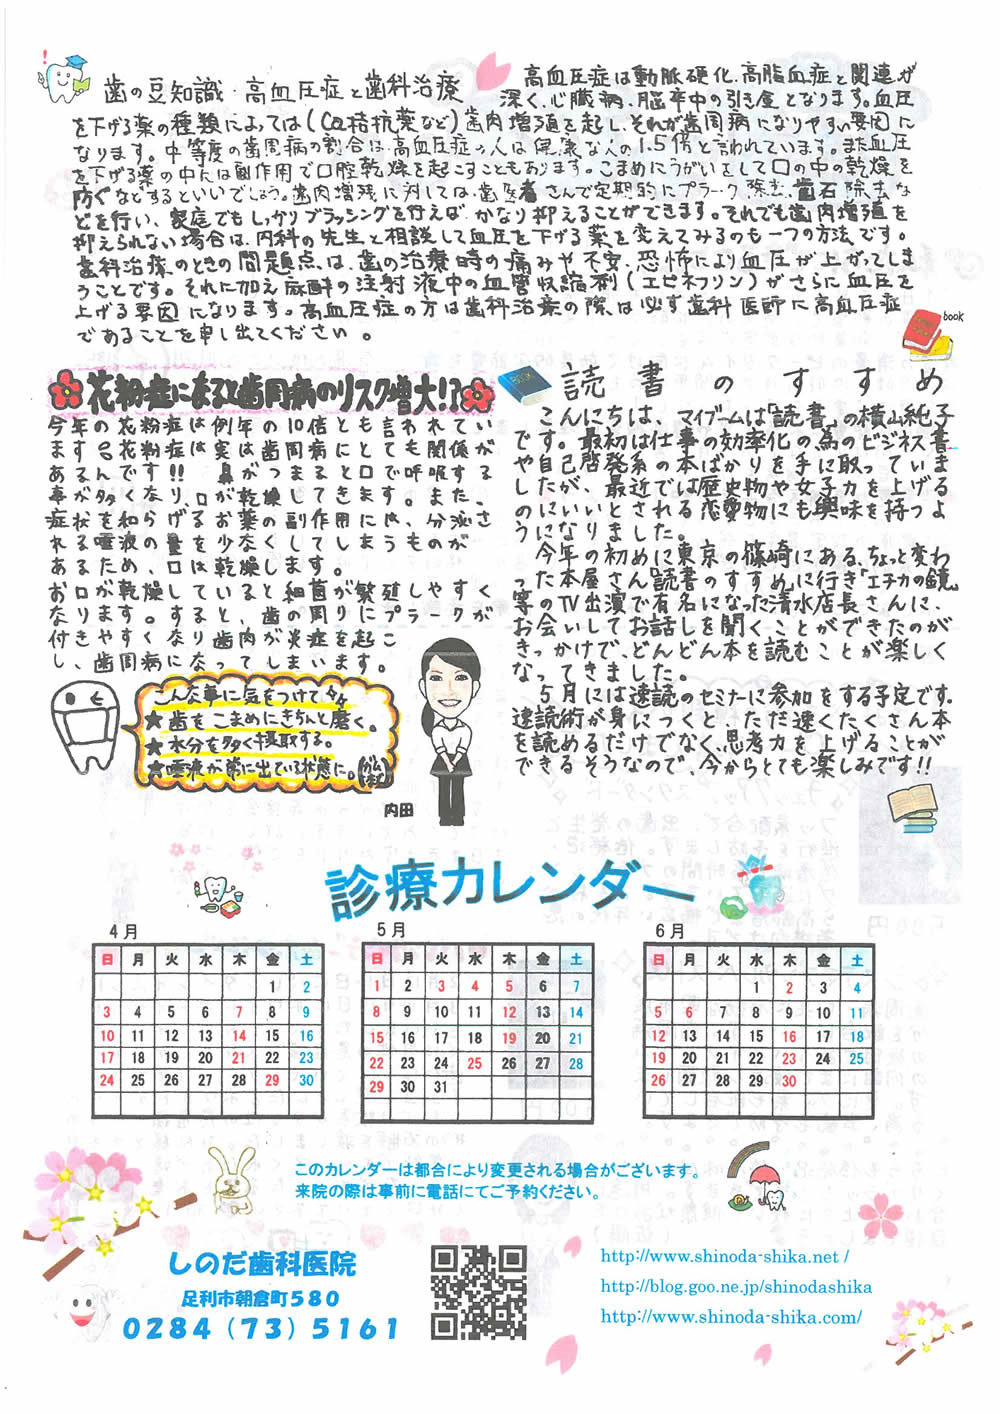 歯の豆知識・高血圧症と歯科治療
高血圧症は動脈硬化、高脂血症と関連が
深く、心臓病、脳卒中の引き金となります。血圧
を下げる薬の種類によっては(Ca拮抗薬など)歯肉増殖を起し、それが歯周病になりやすい要因に
なります。中等度の歯周病の割合は、高血圧症の人は健康な人の1.5倍と言われています。また血圧
を下げる薬の中には副作用で口腔乾燥を起こすこともあります。こまめにうがいをして口の中の乾燥を
防ぐなどするといいでしょう。歯肉増殖に対しては、歯医者さんで定期的にプラーク除去、歯石除去な
どを行い、家庭でもしっかりブラッシングを行えば、かなり抑えることができます。それでも歯肉増殖を
抑えられない場合は、内科の先生と相談して血圧を下げる薬を変えてみるのも一つの方法です。
歯科治療のときの問題点は、歯の治療時の痛みや不安、恐怖により血圧が上がってしま
うことです。それに加え麻酔の注射液中の血管収縮剤(エピネフリン)がさらに血圧を
上げる要因になります。高血圧症の方は歯科治療の際は必ず歯科医師に高血圧症
であることを申し出てください。
book
花粉症になると歯周病のリスク増大!?
今年の花粉症は例年の10倍とも言われてい
ますが花粉症は実は歯周病にとても関係が
あるんです!! 鼻がつまると口で呼吸する
事が多くなり、口が乾燥してきます。また、
症状を和らげるお薬の副作用には、分泌さ
れる唾液の量を少なくしてしまうものが
あるため、口は乾燥します。
お口が乾燥していると細菌が繁殖しやすく
なります。すると、歯の周りにプラークが
付きやすくなり歯肉が炎症を起こ
し、歯周病になってしまいます。
こんな事に気をつけて
★歯をこまめにきちんと磨く。
★水分を多く摂取する。
★唾液が常に出ている状態に。
内田
BOOK
読書のすすめ
こんにちは、マイブームは「読書」の横山純子
です。最初は仕事の効率化の為のビジネス書
や自己啓発系の本ばかりを手に取っていま
したが、最近では歴史物や女子力を上げる
のにいいとされる恋愛物にも興味を持つよ
うになりました。
今年の初めに東京の篠崎にある、ちょっと変わ
った本屋さん「読書のすすめ」に行き「エチカの鏡」
等のTV出演で有名になった清水店長さんに、
お会いしてお話しを聞くことができたのが
きっかけで、どんどん本を読むことが楽しく
なってきました。
5月には速読のセミナーに参加をする予定です。
速読術が身につくと、ただ速くたくさん本
を読めるだけでなく、思考力を上げることが
できるそうなので、今からとても楽しみです!!
診療カレンダー
4月
日 月 火 水 木 金 土
1 2
3 4 5 6 7 8 9
10 11 12 13 14 15 16
17 18 19 20 21 22 23
24 25 26 27 28 29 30
5月
日 月 火 水 木 金 土
1 2 3 4 5 6 7
8 9 10 11 12 13 14
15 16 17 18 19 20 21
22 23 24 25 26 27 28
29 30 31
6月
日 月 火 水 木 金 土
1 2 3 4
5 6 7 8 9 10 11
12 13 14 15 16 17 18
19 20 21 22 23 24 25
26 27 28 29 30
このカレンダーは都合により変更される場合がございます。
来院の際は事前に電話にてご予約ください。
しのだ歯科医院
足利市朝倉町580
0284(73)5161
http://www.shinoda-shika.net /
http://blog.goo.ne.jp/shinodashika
http://www.shinoda-shika.com/